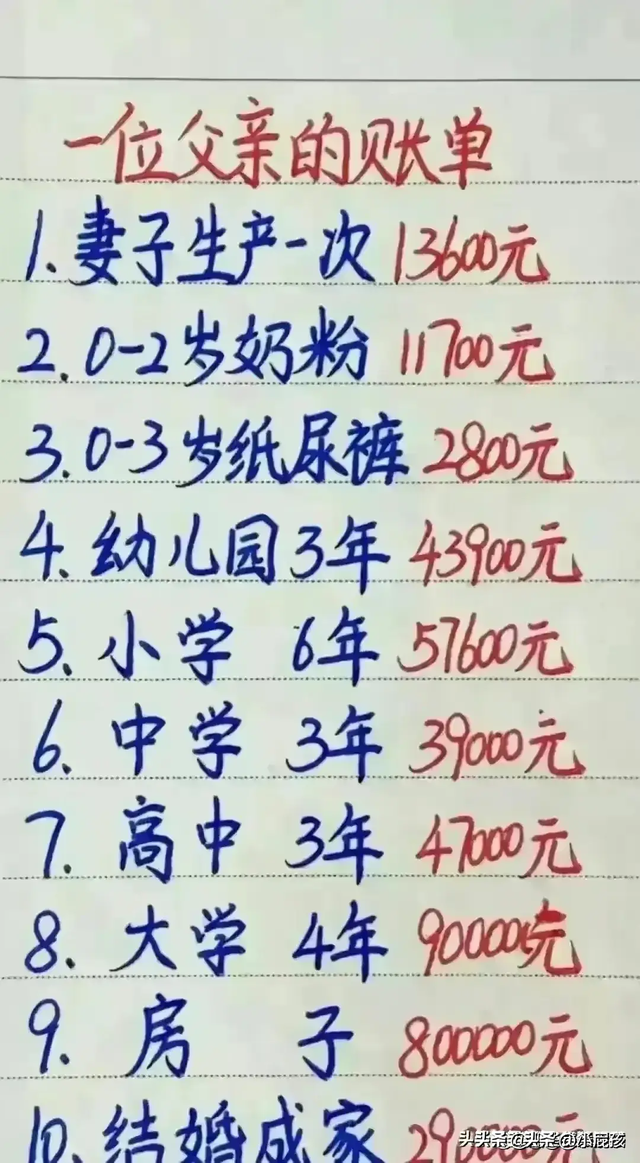 一位父亲的账单
1.妻子生产一次 13600元
2.0-2岁奶粉 11700元
3.0-3岁纸尿裤 2800元
4.幼儿园3年 43900元
5.小学 6年 57600元
6.中学 3年 39000元
7.高中 3年 47000元
8.大学 4年 90000元
9.房子 800000元
10.结婚成家 290000元